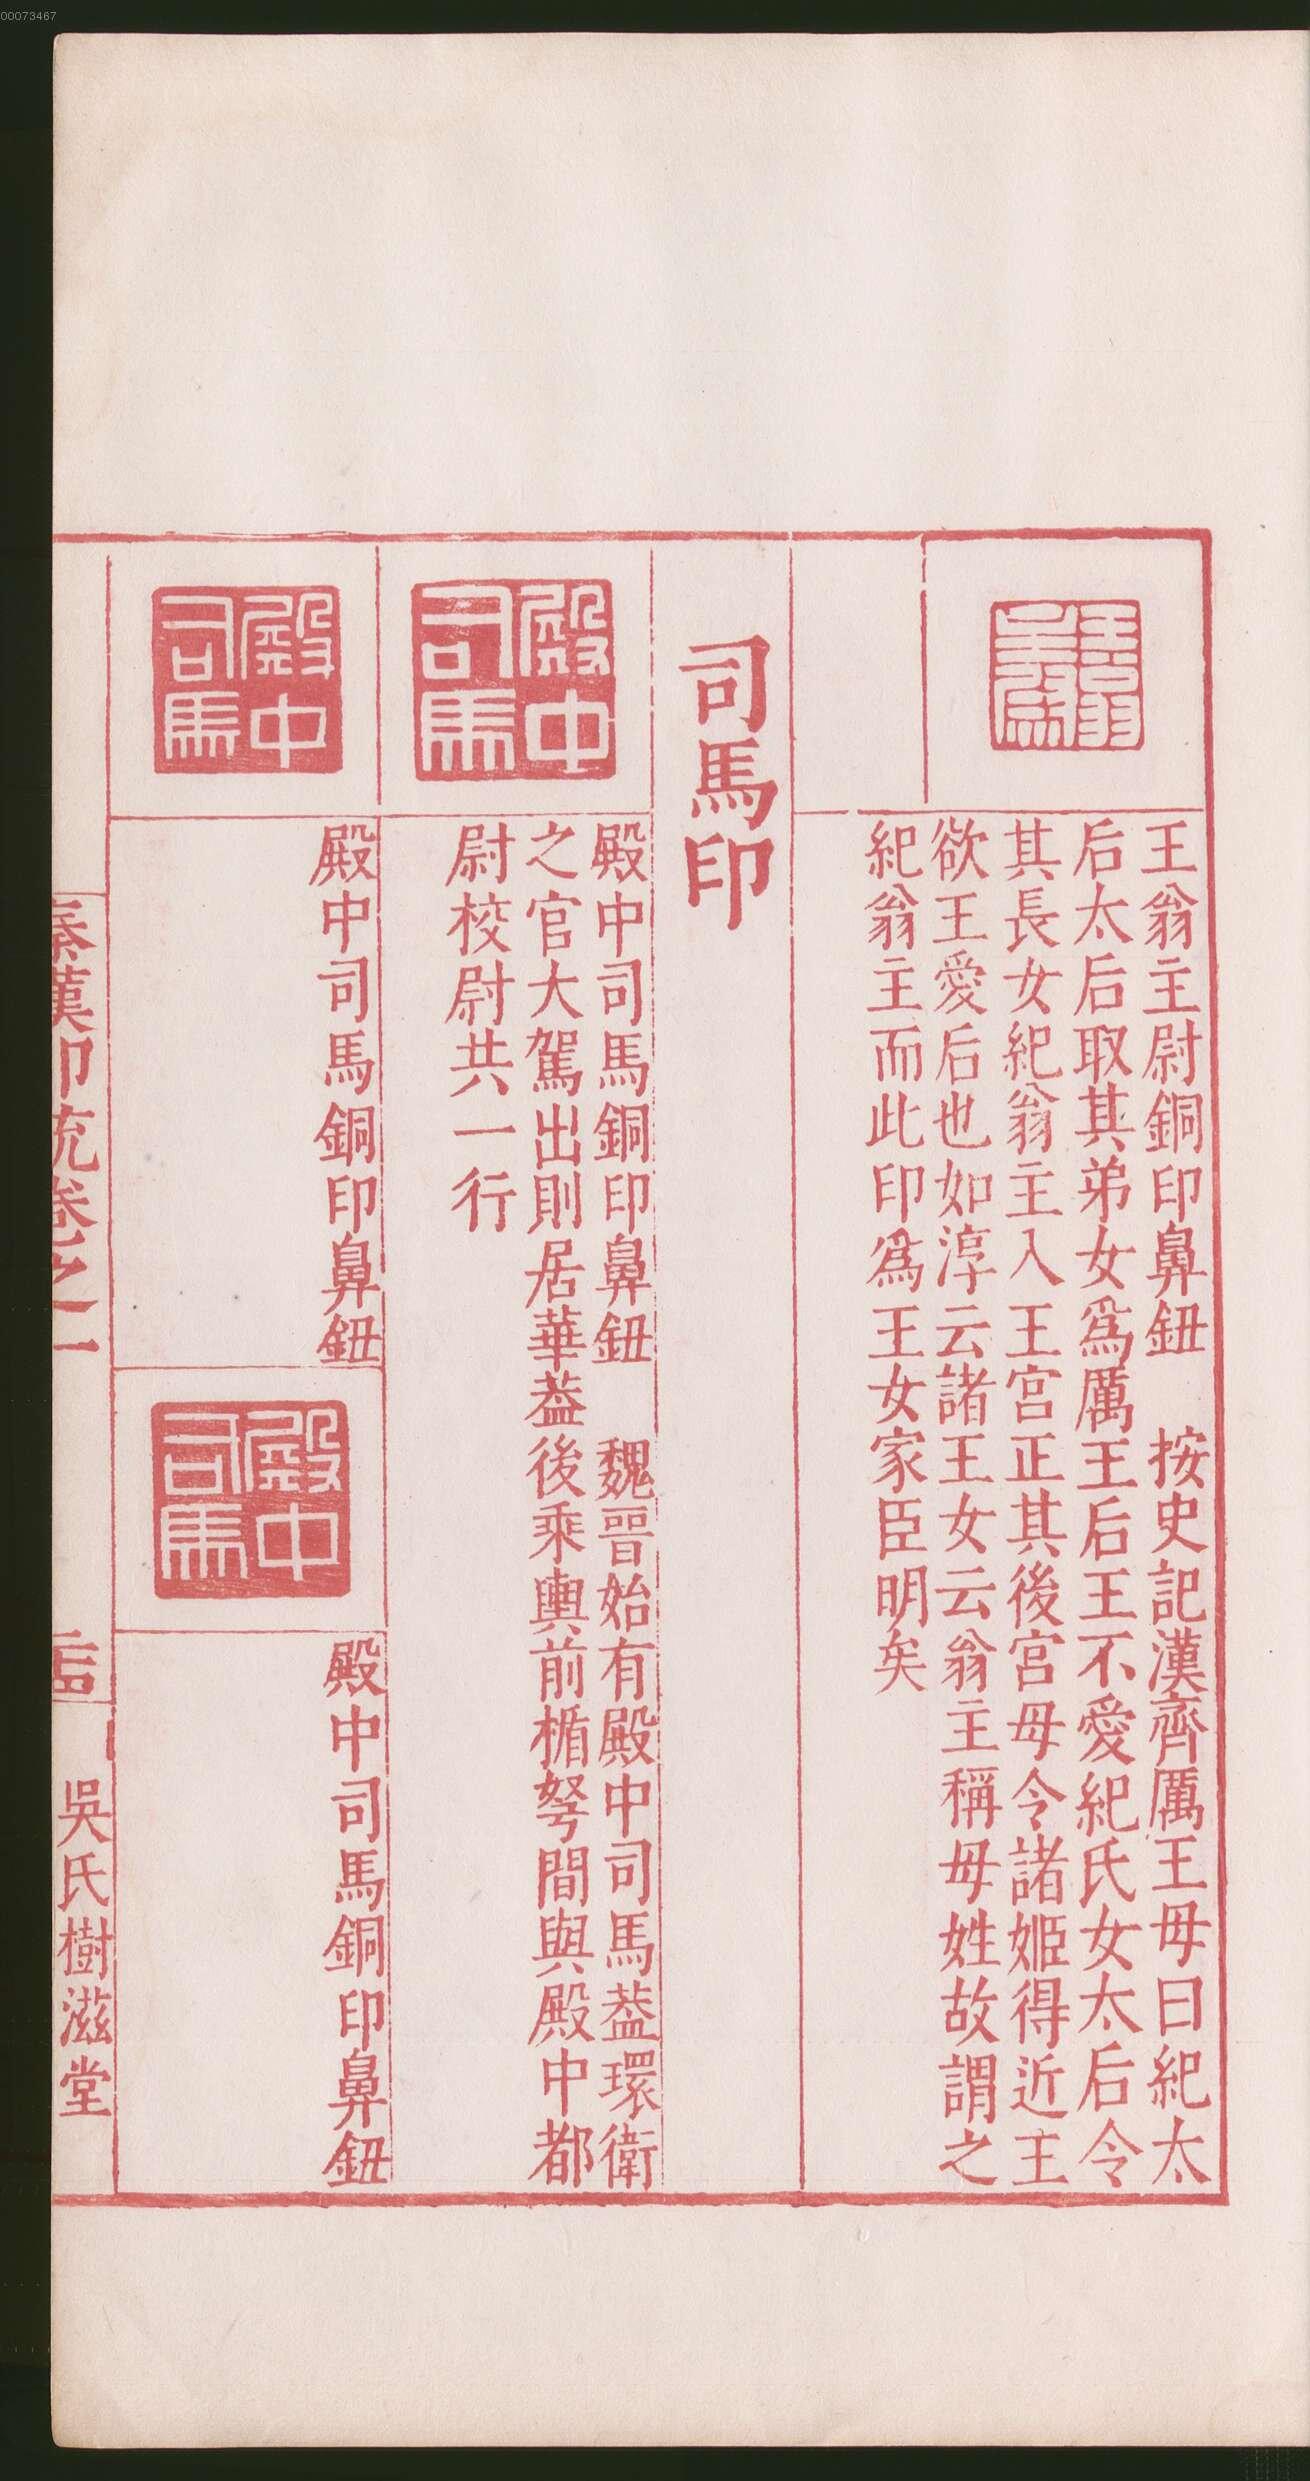 00073467
王翁主尉
王翁主尉銅印鼻鈕　按史記漢齊厲王母曰紀太
后太后取其弟女爲厲王后王不愛紀氏女太后令
其長女紀翁主入王宮正其後宮母令諸姬得近王
欲王愛后也如淳云諸王女云翁主稱母姓故謂之
紀翁主而此印爲王女家臣明矣
司馬印
殿中司馬
殿中司馬銅印鼻鈕　魏晉始有殿中司馬葢環衛
之官大駕出則居華葢後乘輿前楯弩間與殿中都
尉校尉共一行
殿中司馬
殿中司馬銅印鼻鈕
殿中司馬
殿中司馬銅印鼻鈕
秦漢印統卷之一
吳氏樹滋堂